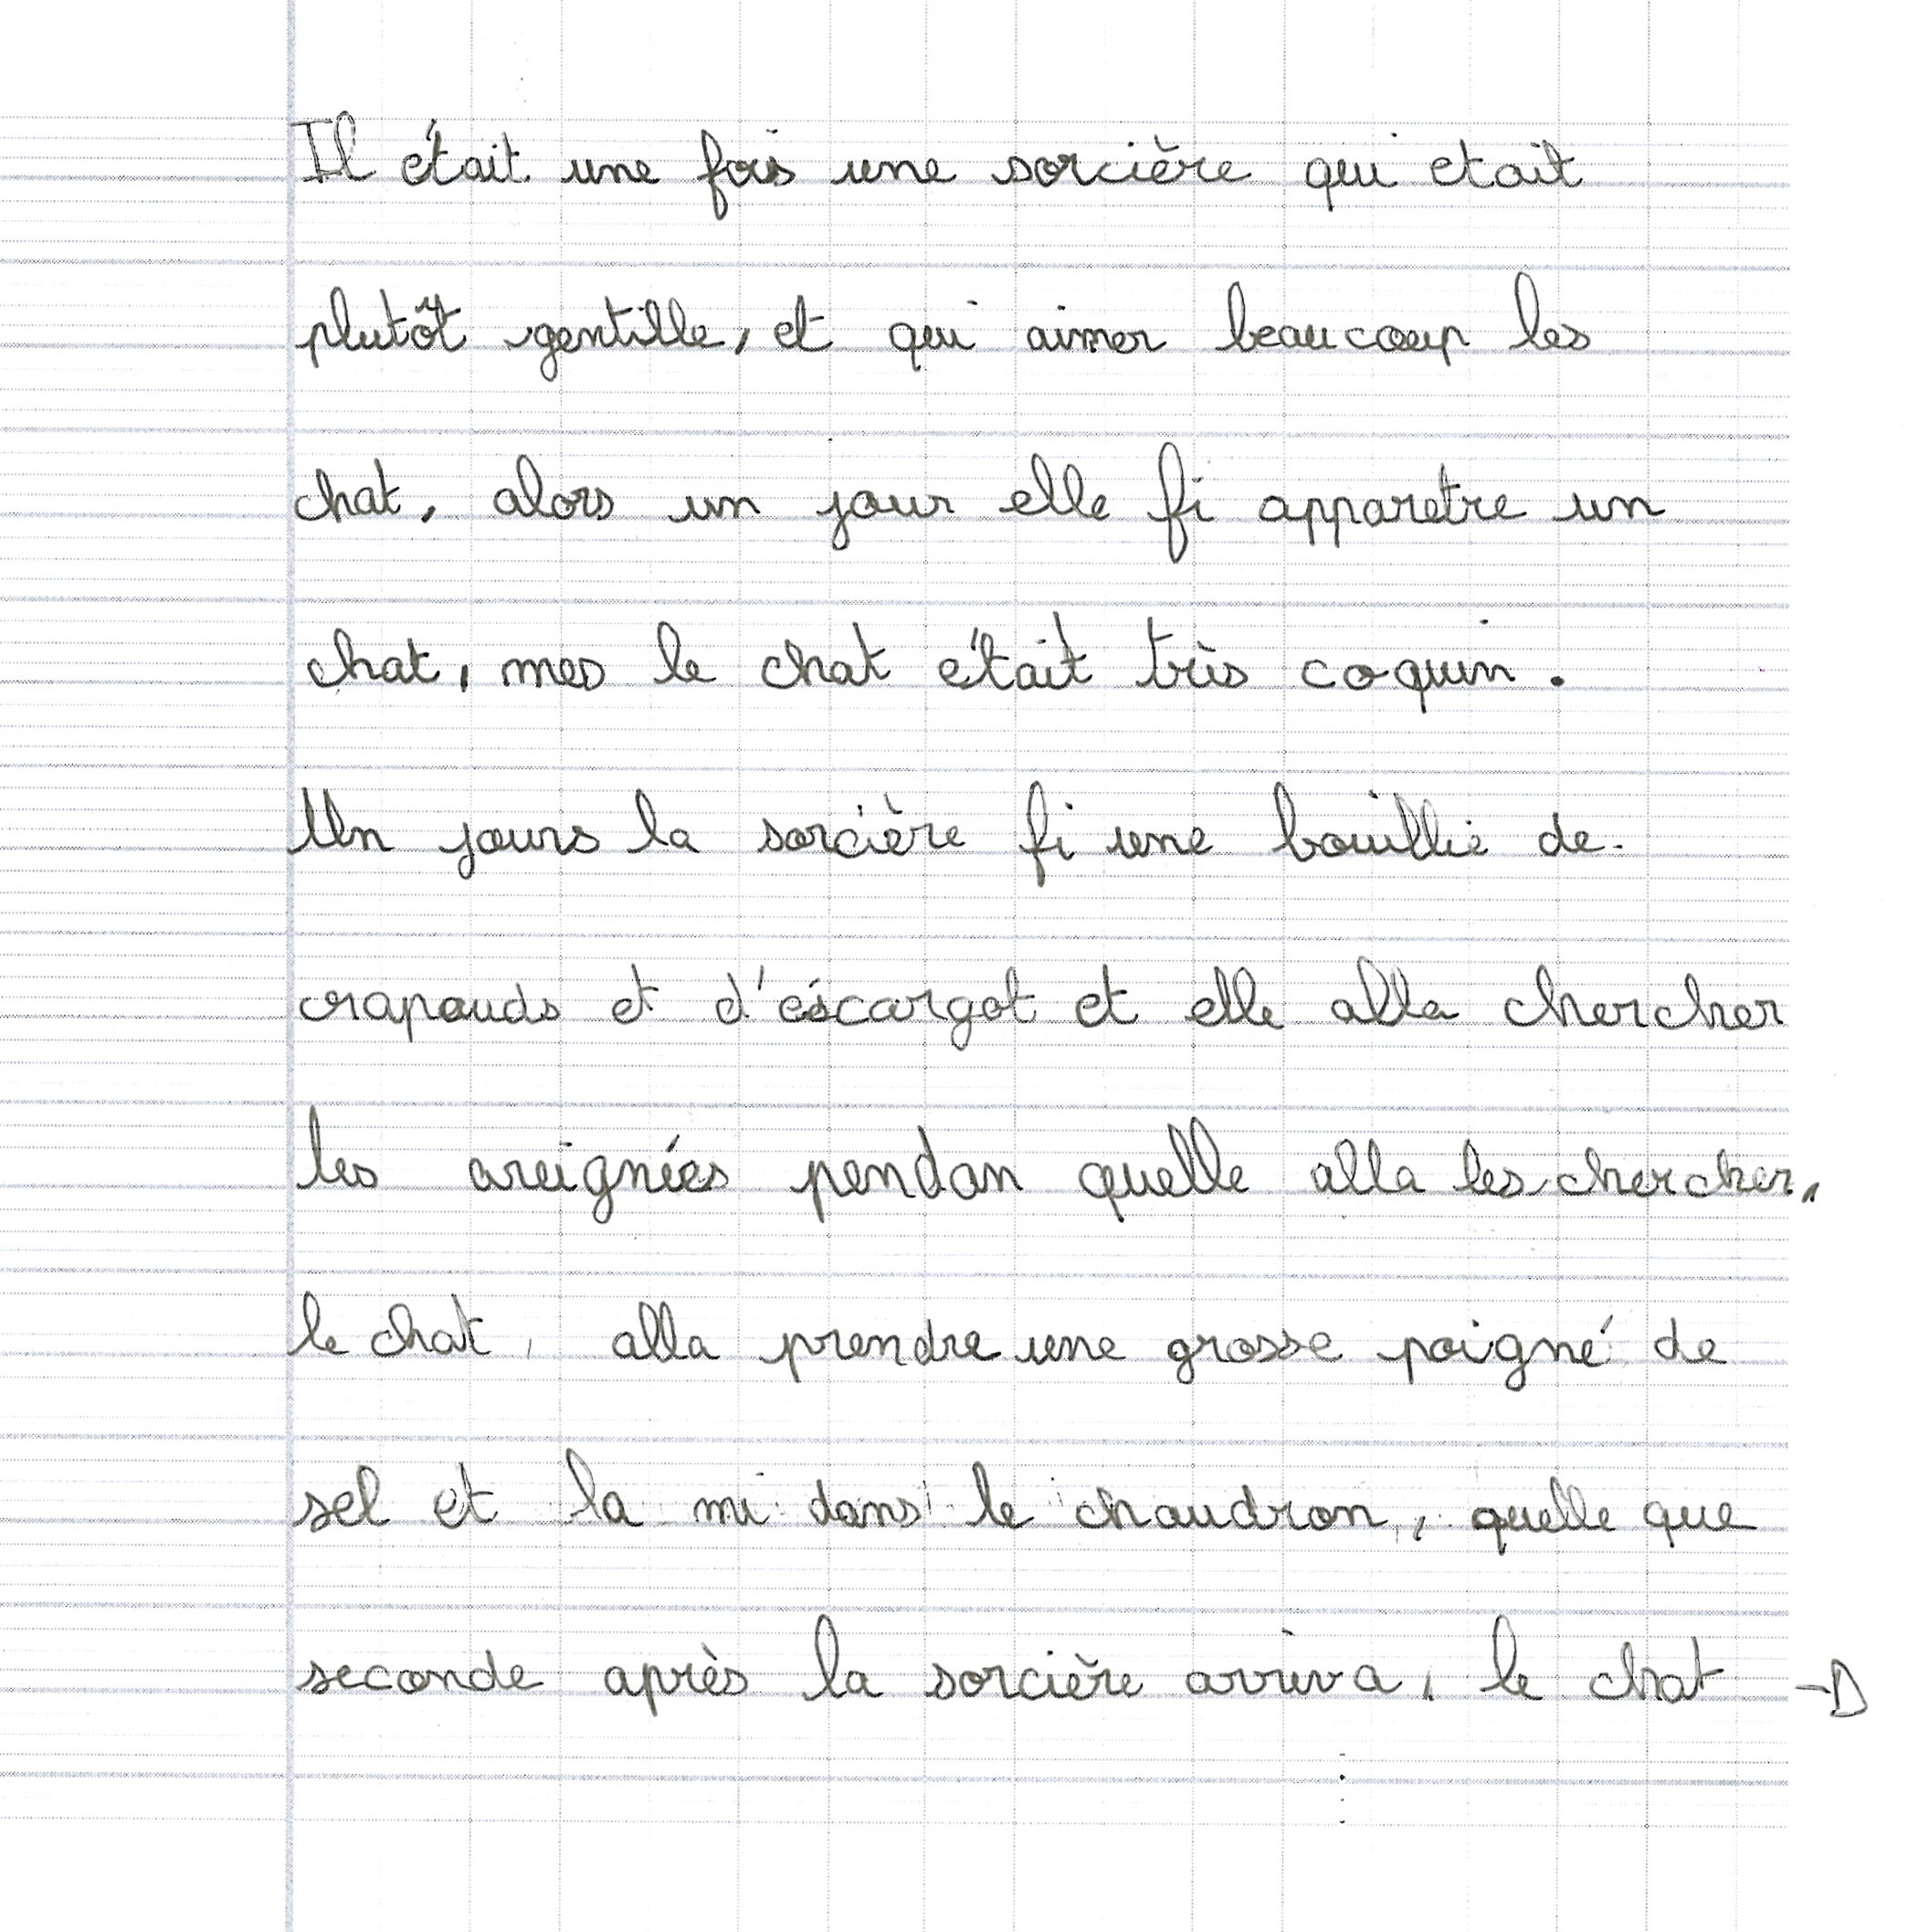 Il était une fois une sorcière qui etait
plutôt gentille, et qui aimer beaucoup les
chat, alors un jour elle fi apparetre un
chat, mes le chat était très coquin.
Un jours la sorcière fi une bouillie de
crapauds et d'éscargot et elle alla chercher
les areignées pendan quelle alla les chercher,
le chat, alla prendre une grosse poigné de
sel et la mi dans le chaudron, quelle que
seconde après la sorcière arriva, le chat →